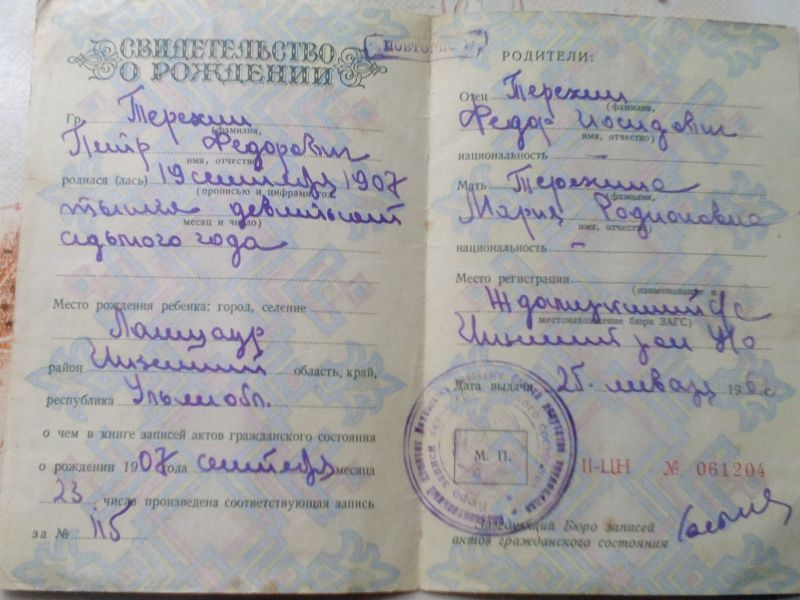 СВИДЕТЕЛЬСТВО
О РОЖДЕНИИ
Гр. Терехин
(фамилия,
Петр Федорович
имя, отчество)
родился (лась) 19 сентября 1907
(прописью и цифрами год,
тысяча девятьсот
месяц и число)
седьмого года
Место рождения ребенка: город, селение
район Инзенский область, край,
республика Ульян обл.
о чем в книге записей актов гражданского состояния
о рождении 1907 года сентября месяца
23 числа произведена соответствующая запись
за № 115
ПОВТОРНОЕ
РОДИТЕЛИ:
Отец Терехин
(фамилия,
Федор
имя, отчество)
национальность –
Мать Терехина
(фамилия,
Мария Родионовна
имя, отчество)
национальность –
Место регистрации
(наименование и
местонахождение бюро ЗАГС)
Инзенский
Дата выдачи 25 января 196
М. П.
II-ЦН № 061204
Заведующий Бюро записей
актов гражданского состояния